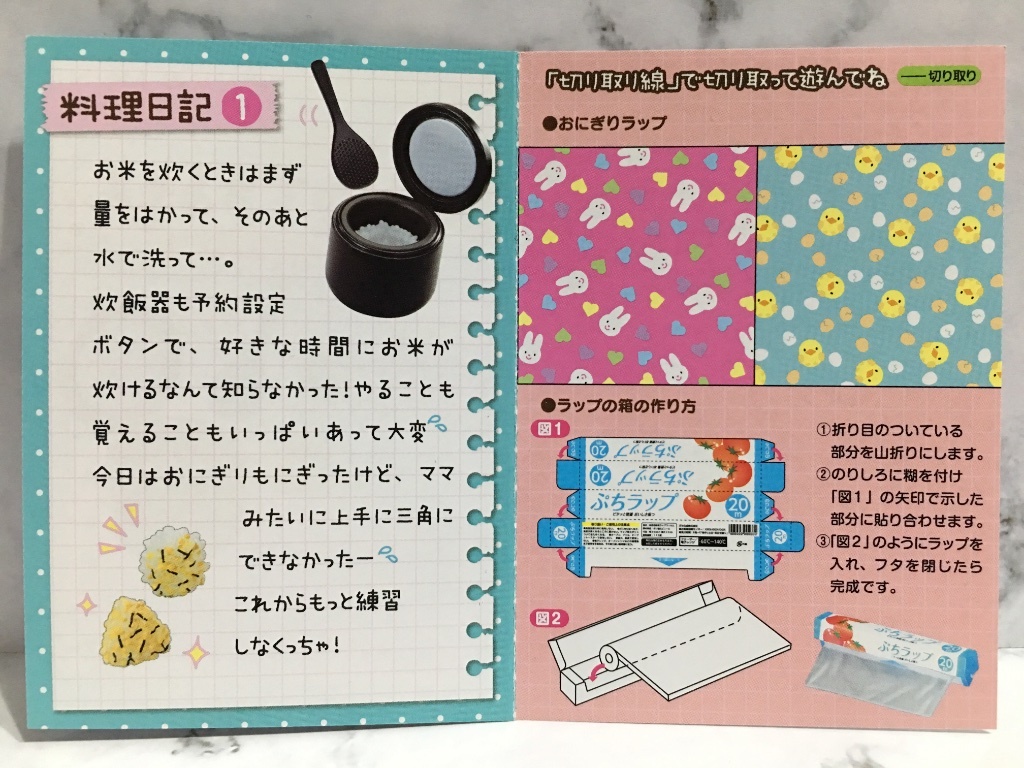 料理日記 1
お米を炊くときはまず
量をはかって、そのあと
水で洗って…。
炊飯器も予約設定
ボタンで、好きな時間にお米が
炊けるなんて知らなかった!やることも
覚えることもいっぱいあって大変
今日はおにぎりもにぎったけど、ママ
みたいに上手に三角に
できなかったー
これからもっと練習
しなくっちゃ!
「切り取り線」で切り取って遊んでね
切り取り
●おにぎりラップ
●ラップの箱の作り方
図1
ぷちラップ
20m
ぷちラップ
20m
ぷちラップ
20m
20
20
60℃~140℃
①折り目のついている
部分を山折りにします。
②のりしろに糊を付け
「図1」の矢印で示した
部分に貼り合わせます。
③「図2」のようにラップを
入れ、フタを閉じたら
完成です。
図2
ぷちラップ
ぷちラップ
20m